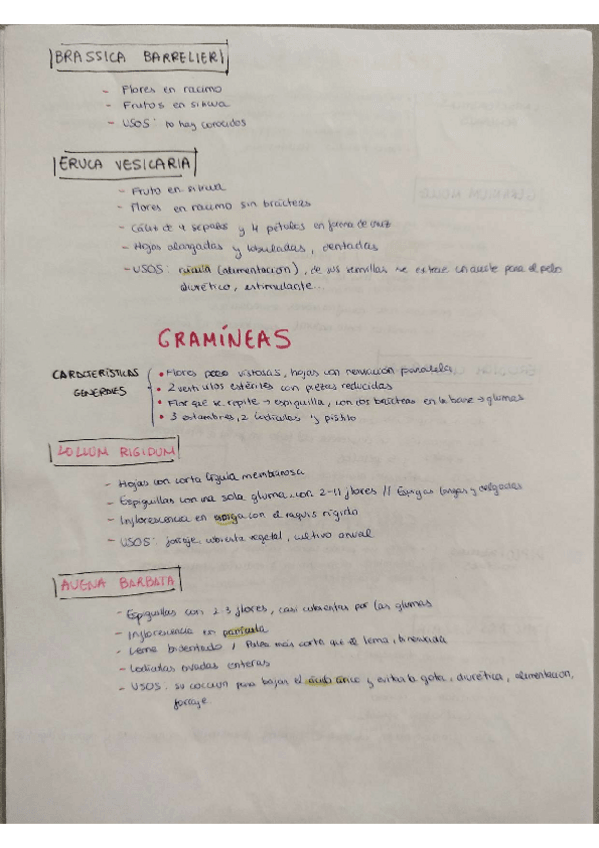 BRASSICA BARRELIERI
- Flores en racimo
- Frutos en silicua
- USOS: no hay conocidos
ERUCA VESICARIA
- Fruto en silicua
- Flores en racimo sin brácteas
- Cáliz de 4 sépalos y 4 pétalos en forma de cruz
- Hojas alargadas y lobuladas, dentadas
- USOS: rúcula (alimentación), de sus semillas se extrae un aceite para el pelo
diurético, estimulante...
GRAMÍNEAS
CARACTERÍSTICAS GENERALES
• Flores poco vistosas, hojas con nervación paralela
• 2 verticilos estériles con piezas reducidas
• Flor que se repite → espiguilla, con dos brácteas en la base → glumas
• 3 estambres, 2 lodículas y pistilo
LOLIUM RIGIDUM
- Hojas con corta lígula membranosa
- Espiguillas con una sola gluma, con 2-11 flores // Espigas largas y delgadas
- Inflorescencia en espiga con el raquis rígido
- USOS: forraje, cubierta vegetal, cultivo anual
AVENA BARBATA
- Espiguillas con 2-3 flores, casi cubiertas por las glumas
- Inflorescencia en panícula
- Lema bidentado / Palea más corta que el lema, binervada
- Lodículas ovadas enteras
- USOS: su cocción para bajar el ácido úrico y evitar la gota, diurética, alimentación,
forraje